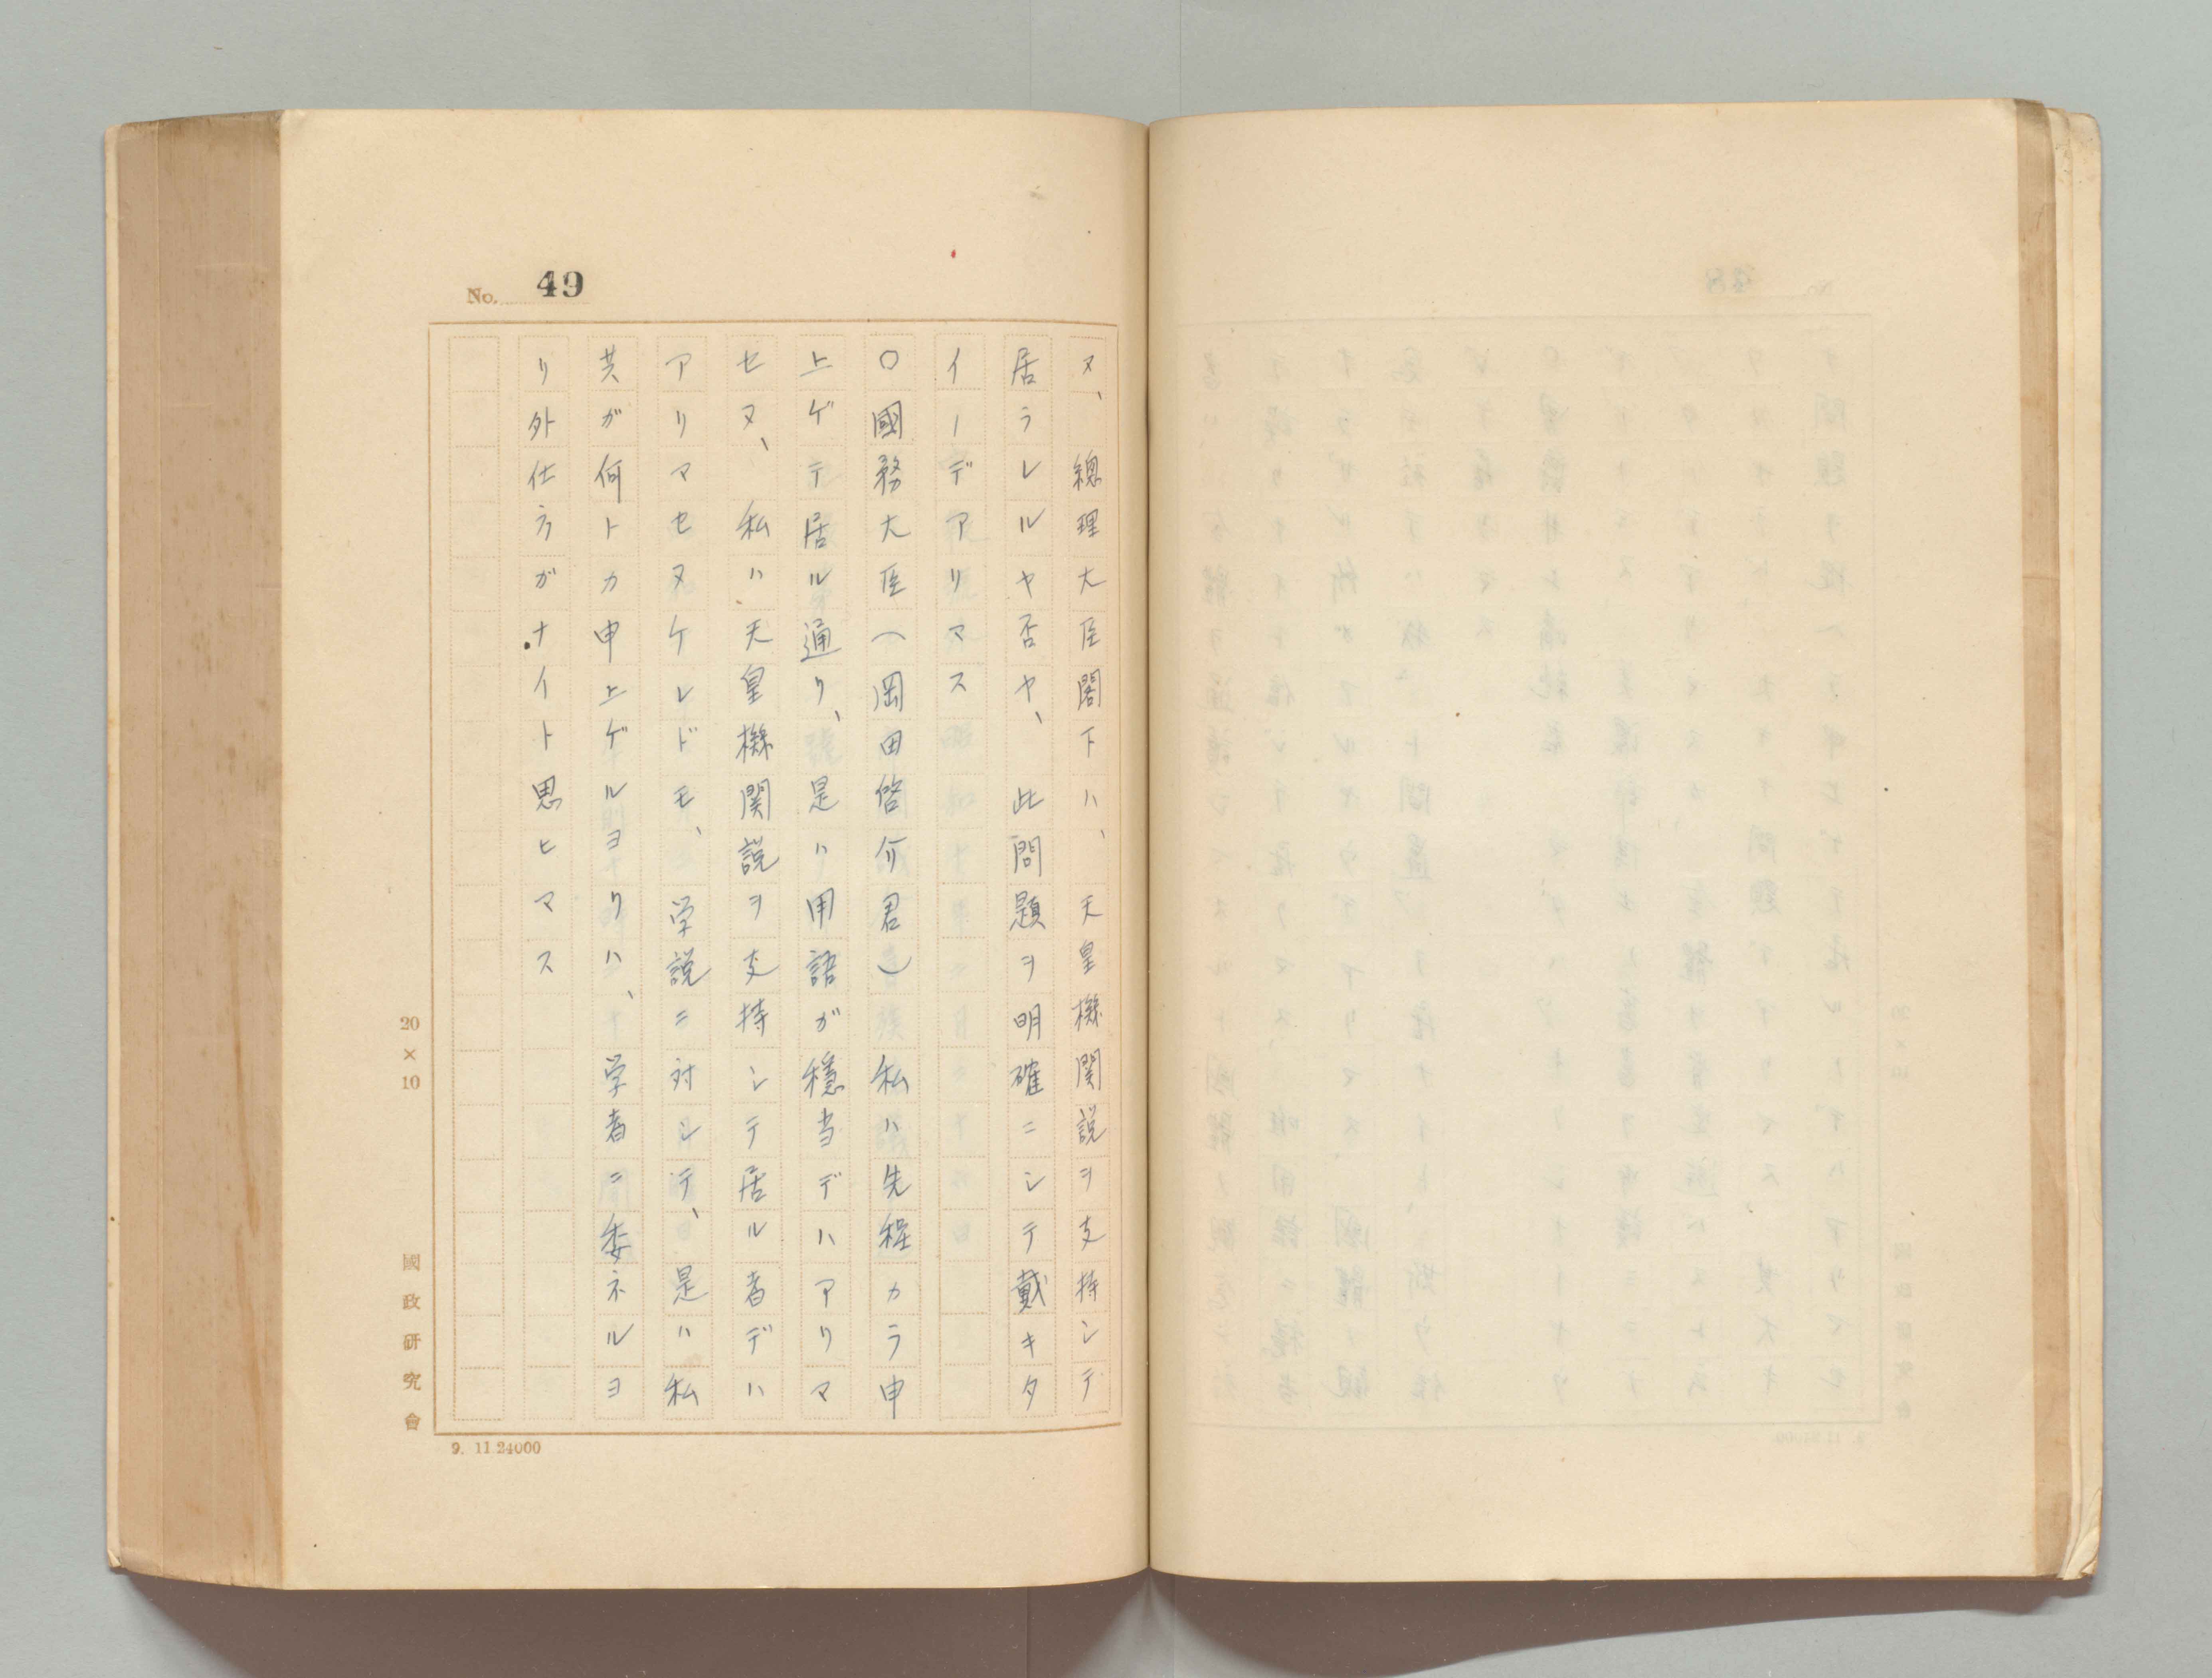 No. 49
ヌ、總理大臣閣下ハ、天皇機関説ヲ支持シテ
居ラレルヤ否ヤ、此問題ヲ明確ニシテ戴キタ
イーデアリマス
〇國務大臣(岡田啓介君)私ハ先程カラ申
上ゲテ居ル通リ、是ハ用語ガ穏当デハアリマ
セヌ、私ハ天皇機関説ヲ支持シテ居ル者デハ
アリマセヌケレドモ、学説ニ対シテ、是ハ私
共ガ何トカ申上ゲルヨリハ、学者ニ委ネルヨ
リ外仕方ガナイト思ヒマス
20×10
國政研究會
9. 11 24000